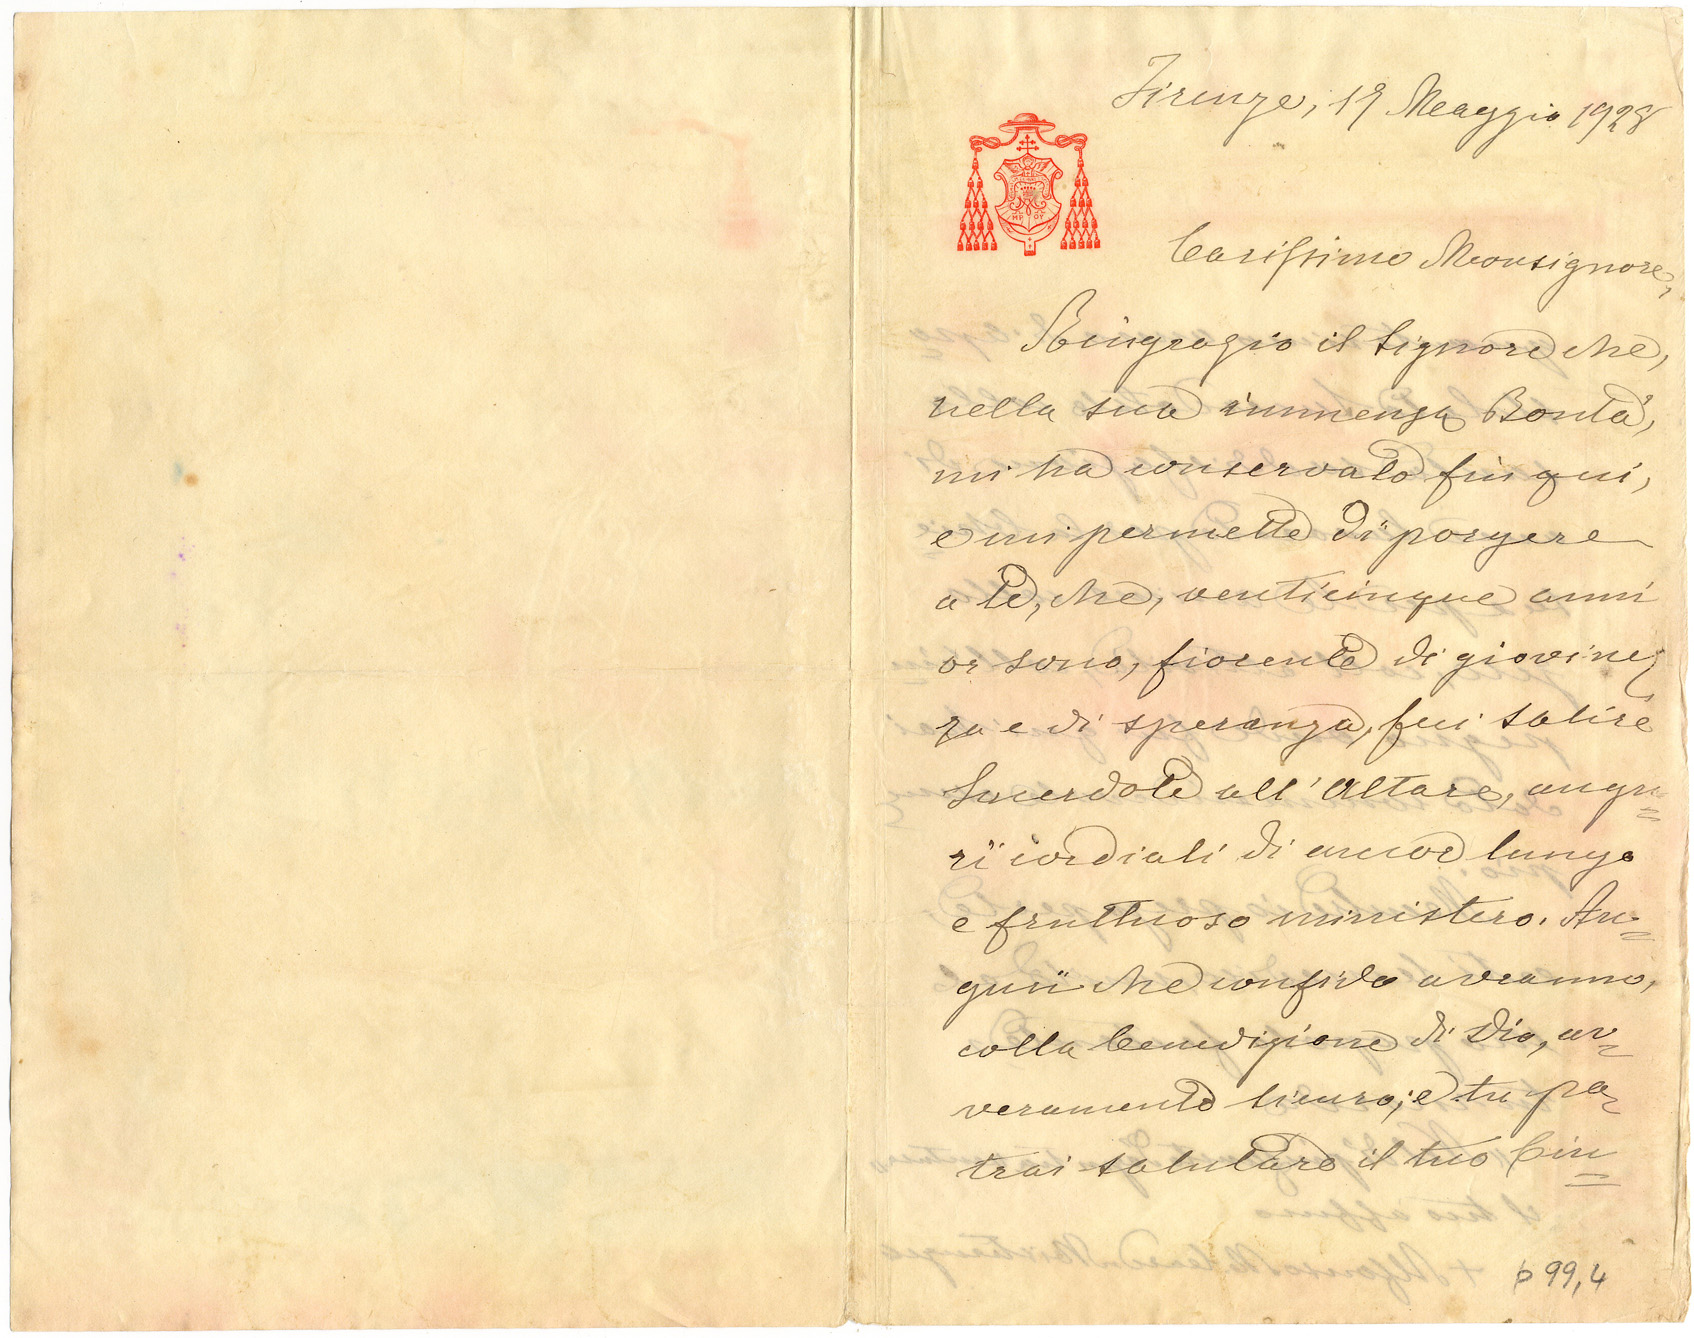 Firenze, 19 Maggio 1928
Carissimo Monsignore,
Ringrazio il Signore che,
nella sua immensa Bontà,
mi ha conservato fin qui,
e mi permette di porgere
a te, che, venticinque anni
or sono, fiorente di giovinez
za e di speranza, feci salire
Sacerdote all'Altare, augu=
rî cordiali di ancor lungo
e fruttuoso ministero. Au=
gurii che confido avranno,
colla benedizione di Dio, av=
veramento sicuro; e tu po=
trai salutare il tuo Cin=
p 99,4